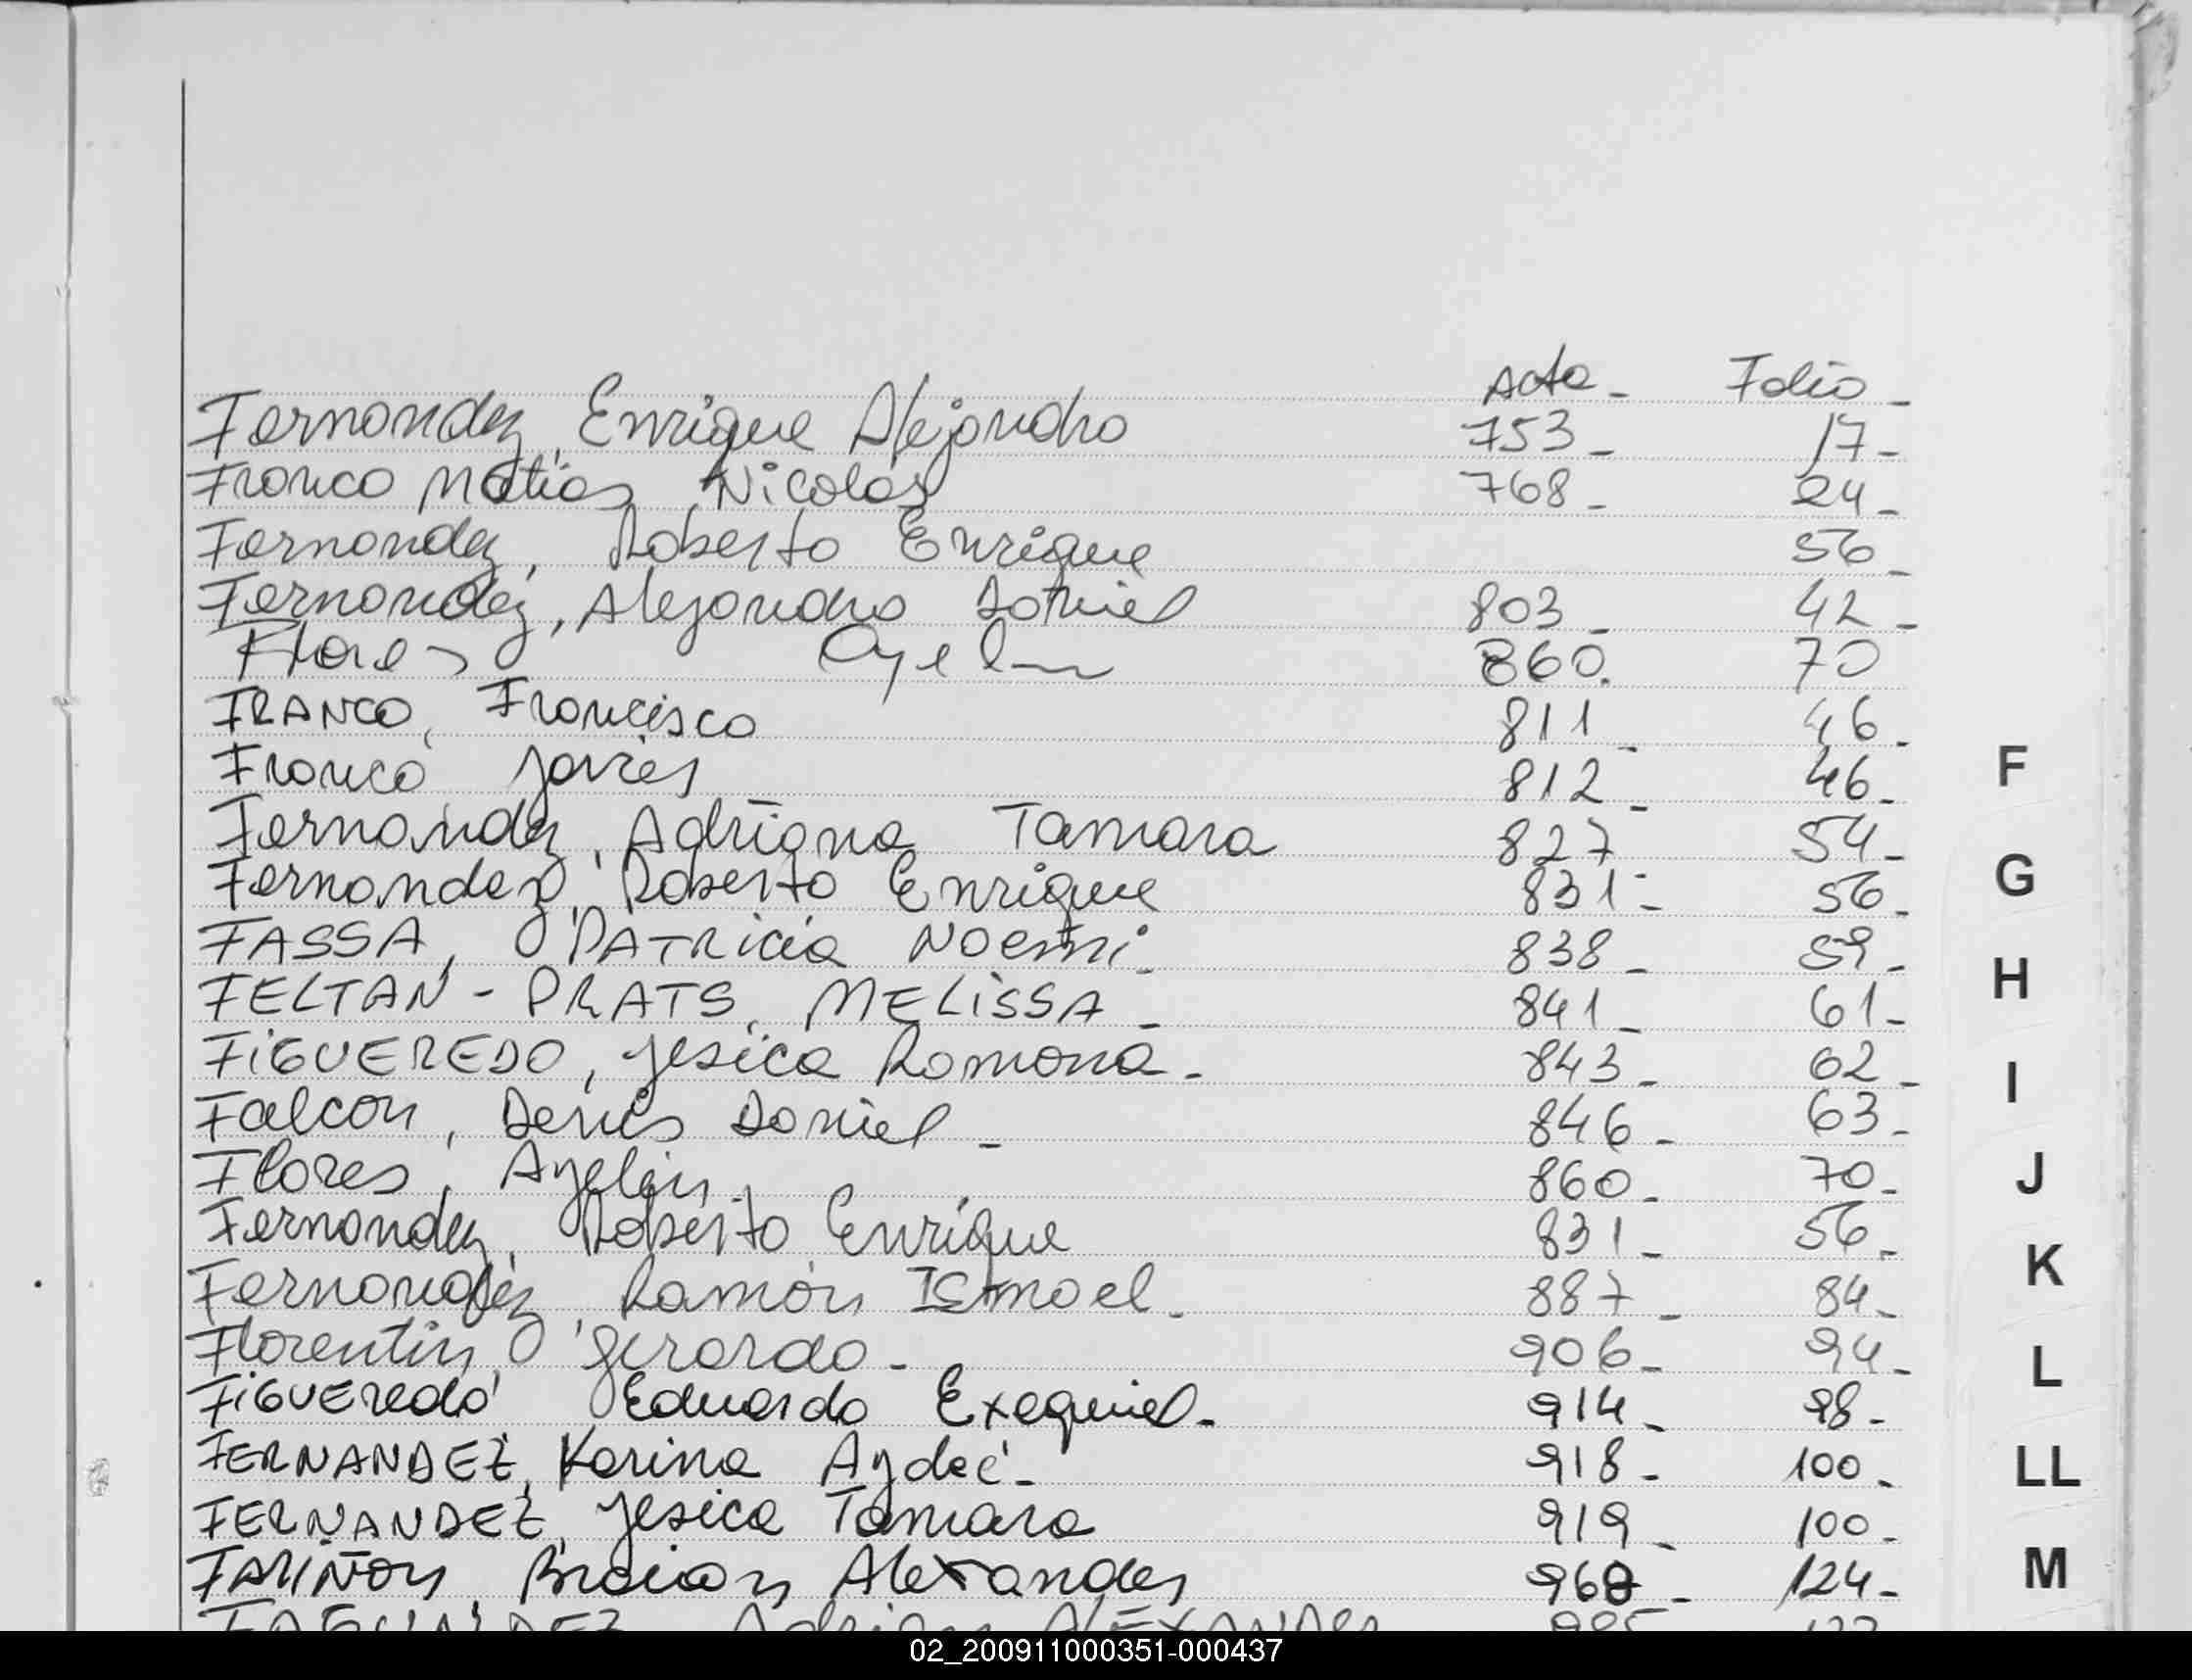 Acta - Folio -
Fernandez, Enrique Alejandro 753 - 17 -
Franco Matias Nicolás 768 - 24 -
Fernandez, Roberto Enrique 56 -
Fernandez, Alejandro Daniel 803 - 42 -
Flores Ayelen 860. 70
FRANCO, Francisco 811 - 46 -
Franco Javier 812 - 46 -
Fernandez, Adriana Tamara 827 54 -
Fernandez, Roberto Enrique 831 - 56 -
FASSA, PATRicia NOEMi - 838 - 59 -
FELTAN - PRATS, MELiSSA - 841 - 61 -
FiGUEREDO, Jesica Romona - 843 - 62 -
Falcon, Denis Daniel - 846 - 63 -
Flores, Ayelén - 860 - 70 -
Fernandez, Roberto Enrique 831 - 56 -
Fernandez, Ramón Ismael - 887 - 84 -
Florentin, Gerardo - 906 - 94 -
FiGUEredo Eduardo Exequiel - 914 - 98 -
FERNANDEZ, Karina Aydeé - 918 - 100 -
FERNANDEZ, Jesica Tamara 919 - 100 -
FARIÑON Braian Alexander 968 - 124 -
Adrian ALEXANDER
F
G
H
I
J
K
L
LL
M
02_200911000351-000437